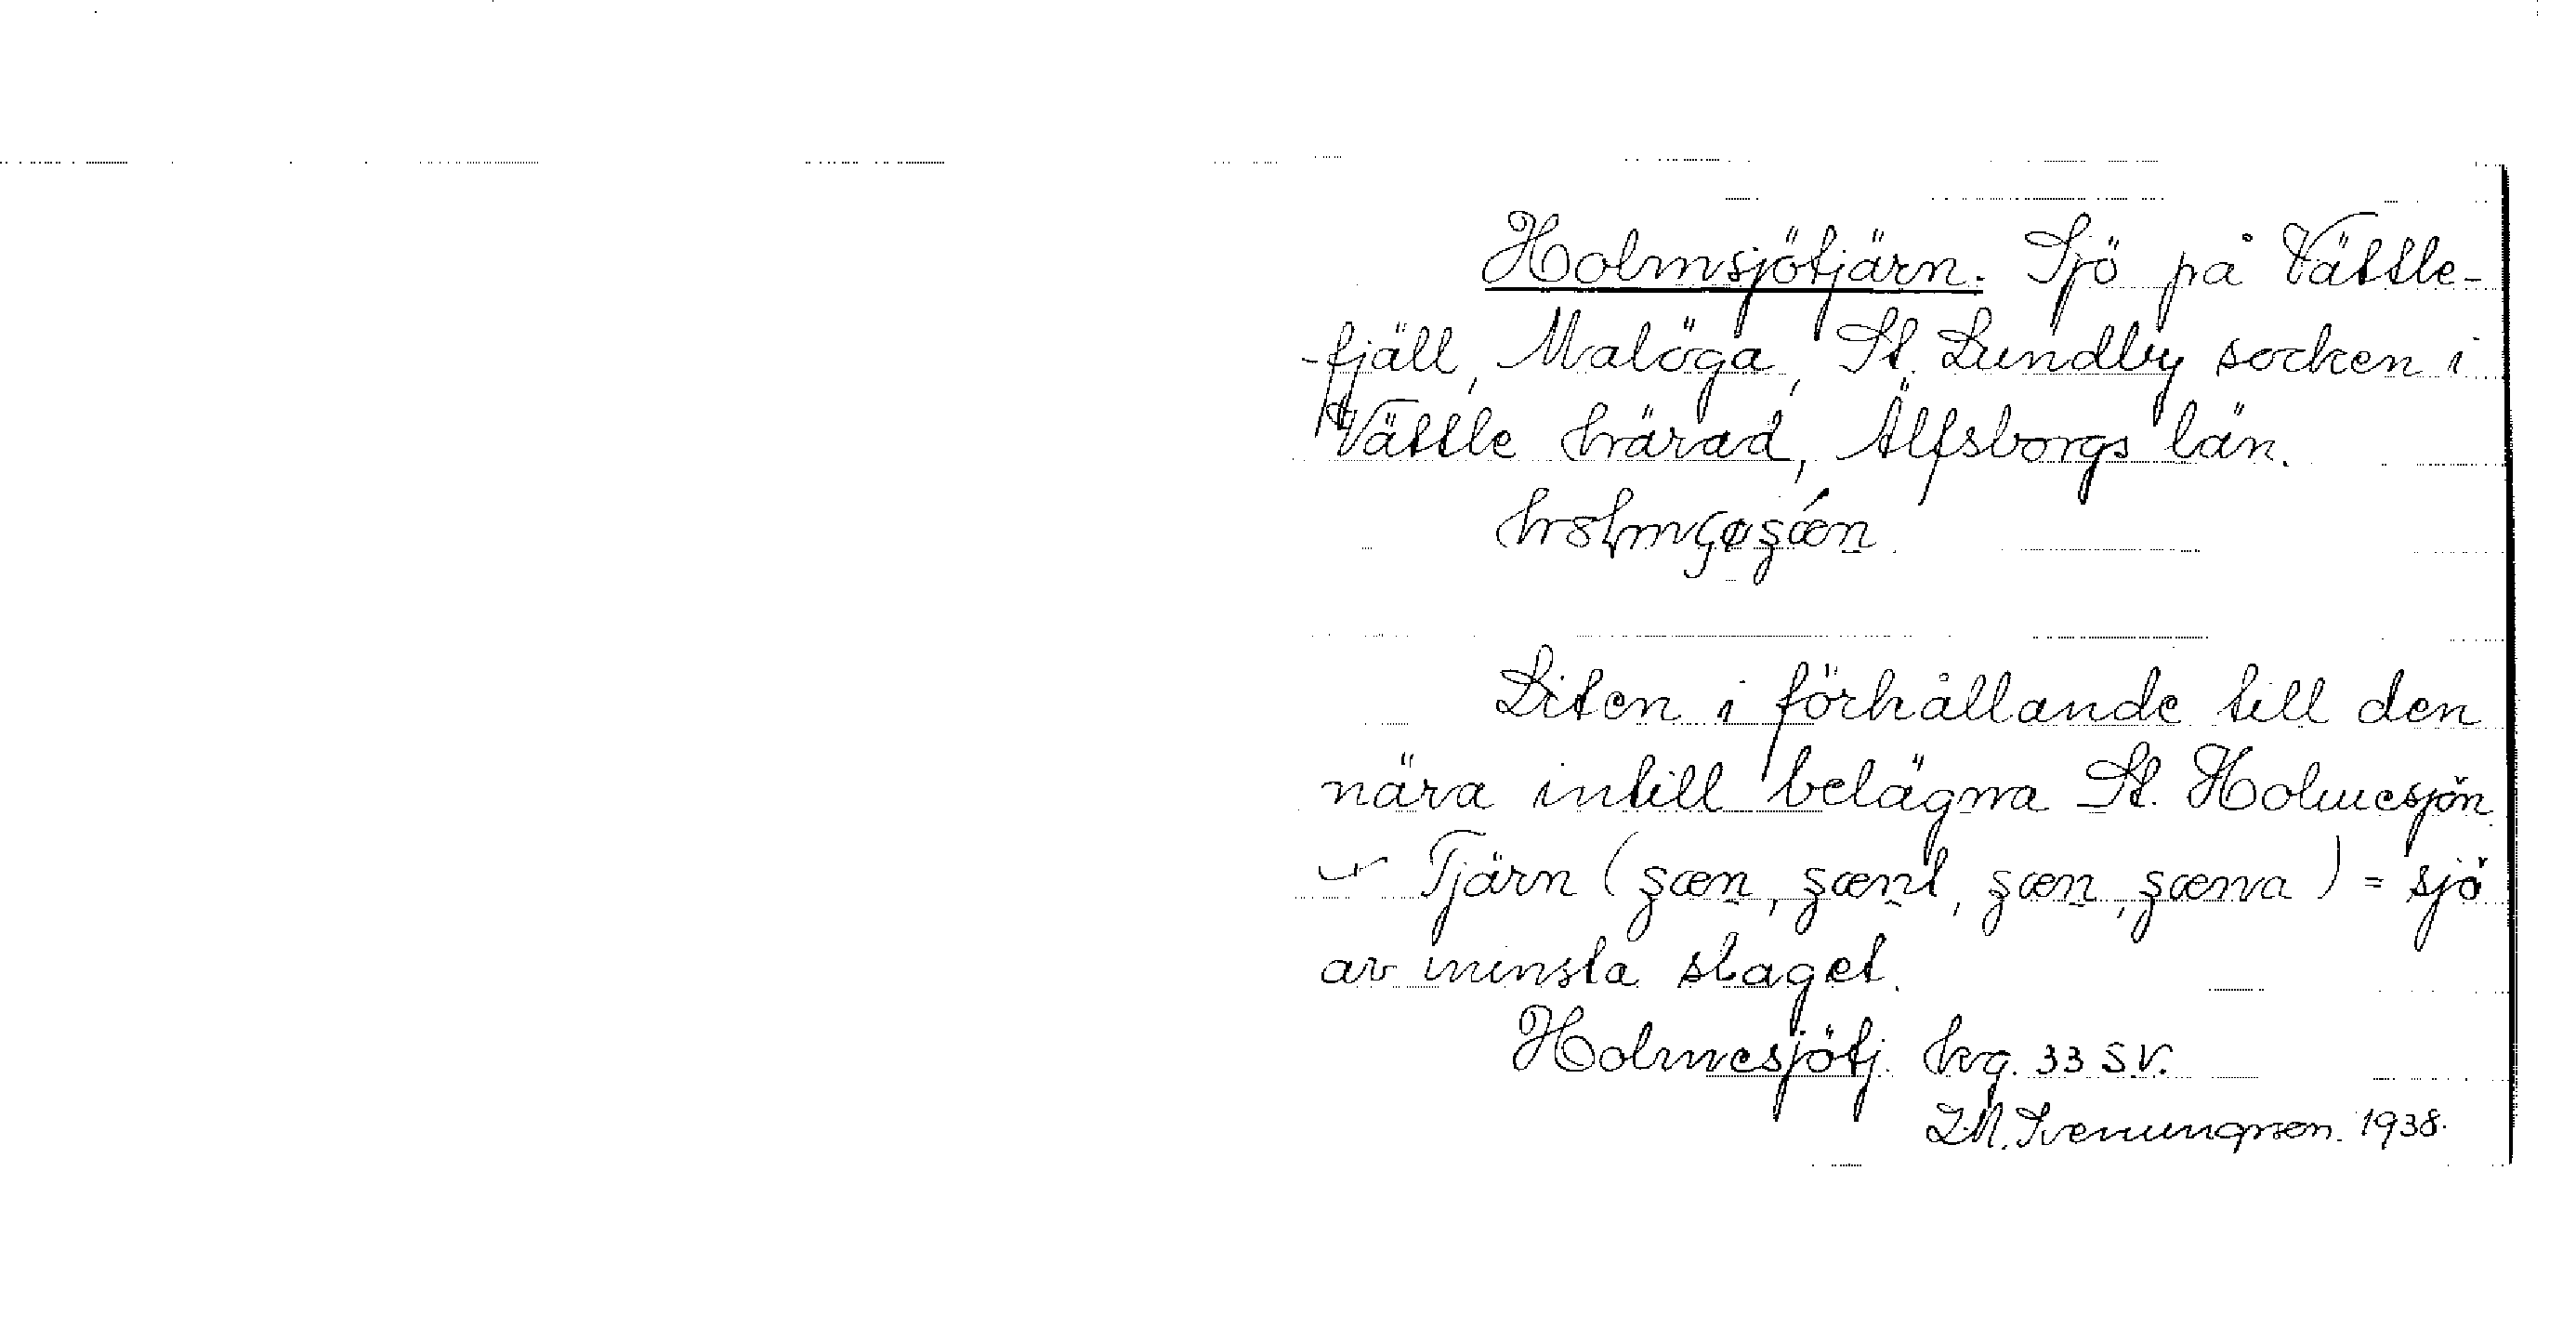 Holmsjötjärn. Sjö på Vättle-
-fjäll, Malöga, St. Lundby socken i
Vättle härad, Älfsborgs län.
Liten i förhållande till den
nära intill belägna St. Holmesjön
Tjärn (ʂæn, ʂænt, ʂæn, ʂæna) = sjö
av minsta slaget.
Holmesjötj. hvg. 33 S.V.
I.M. Svenungsson. 1938.